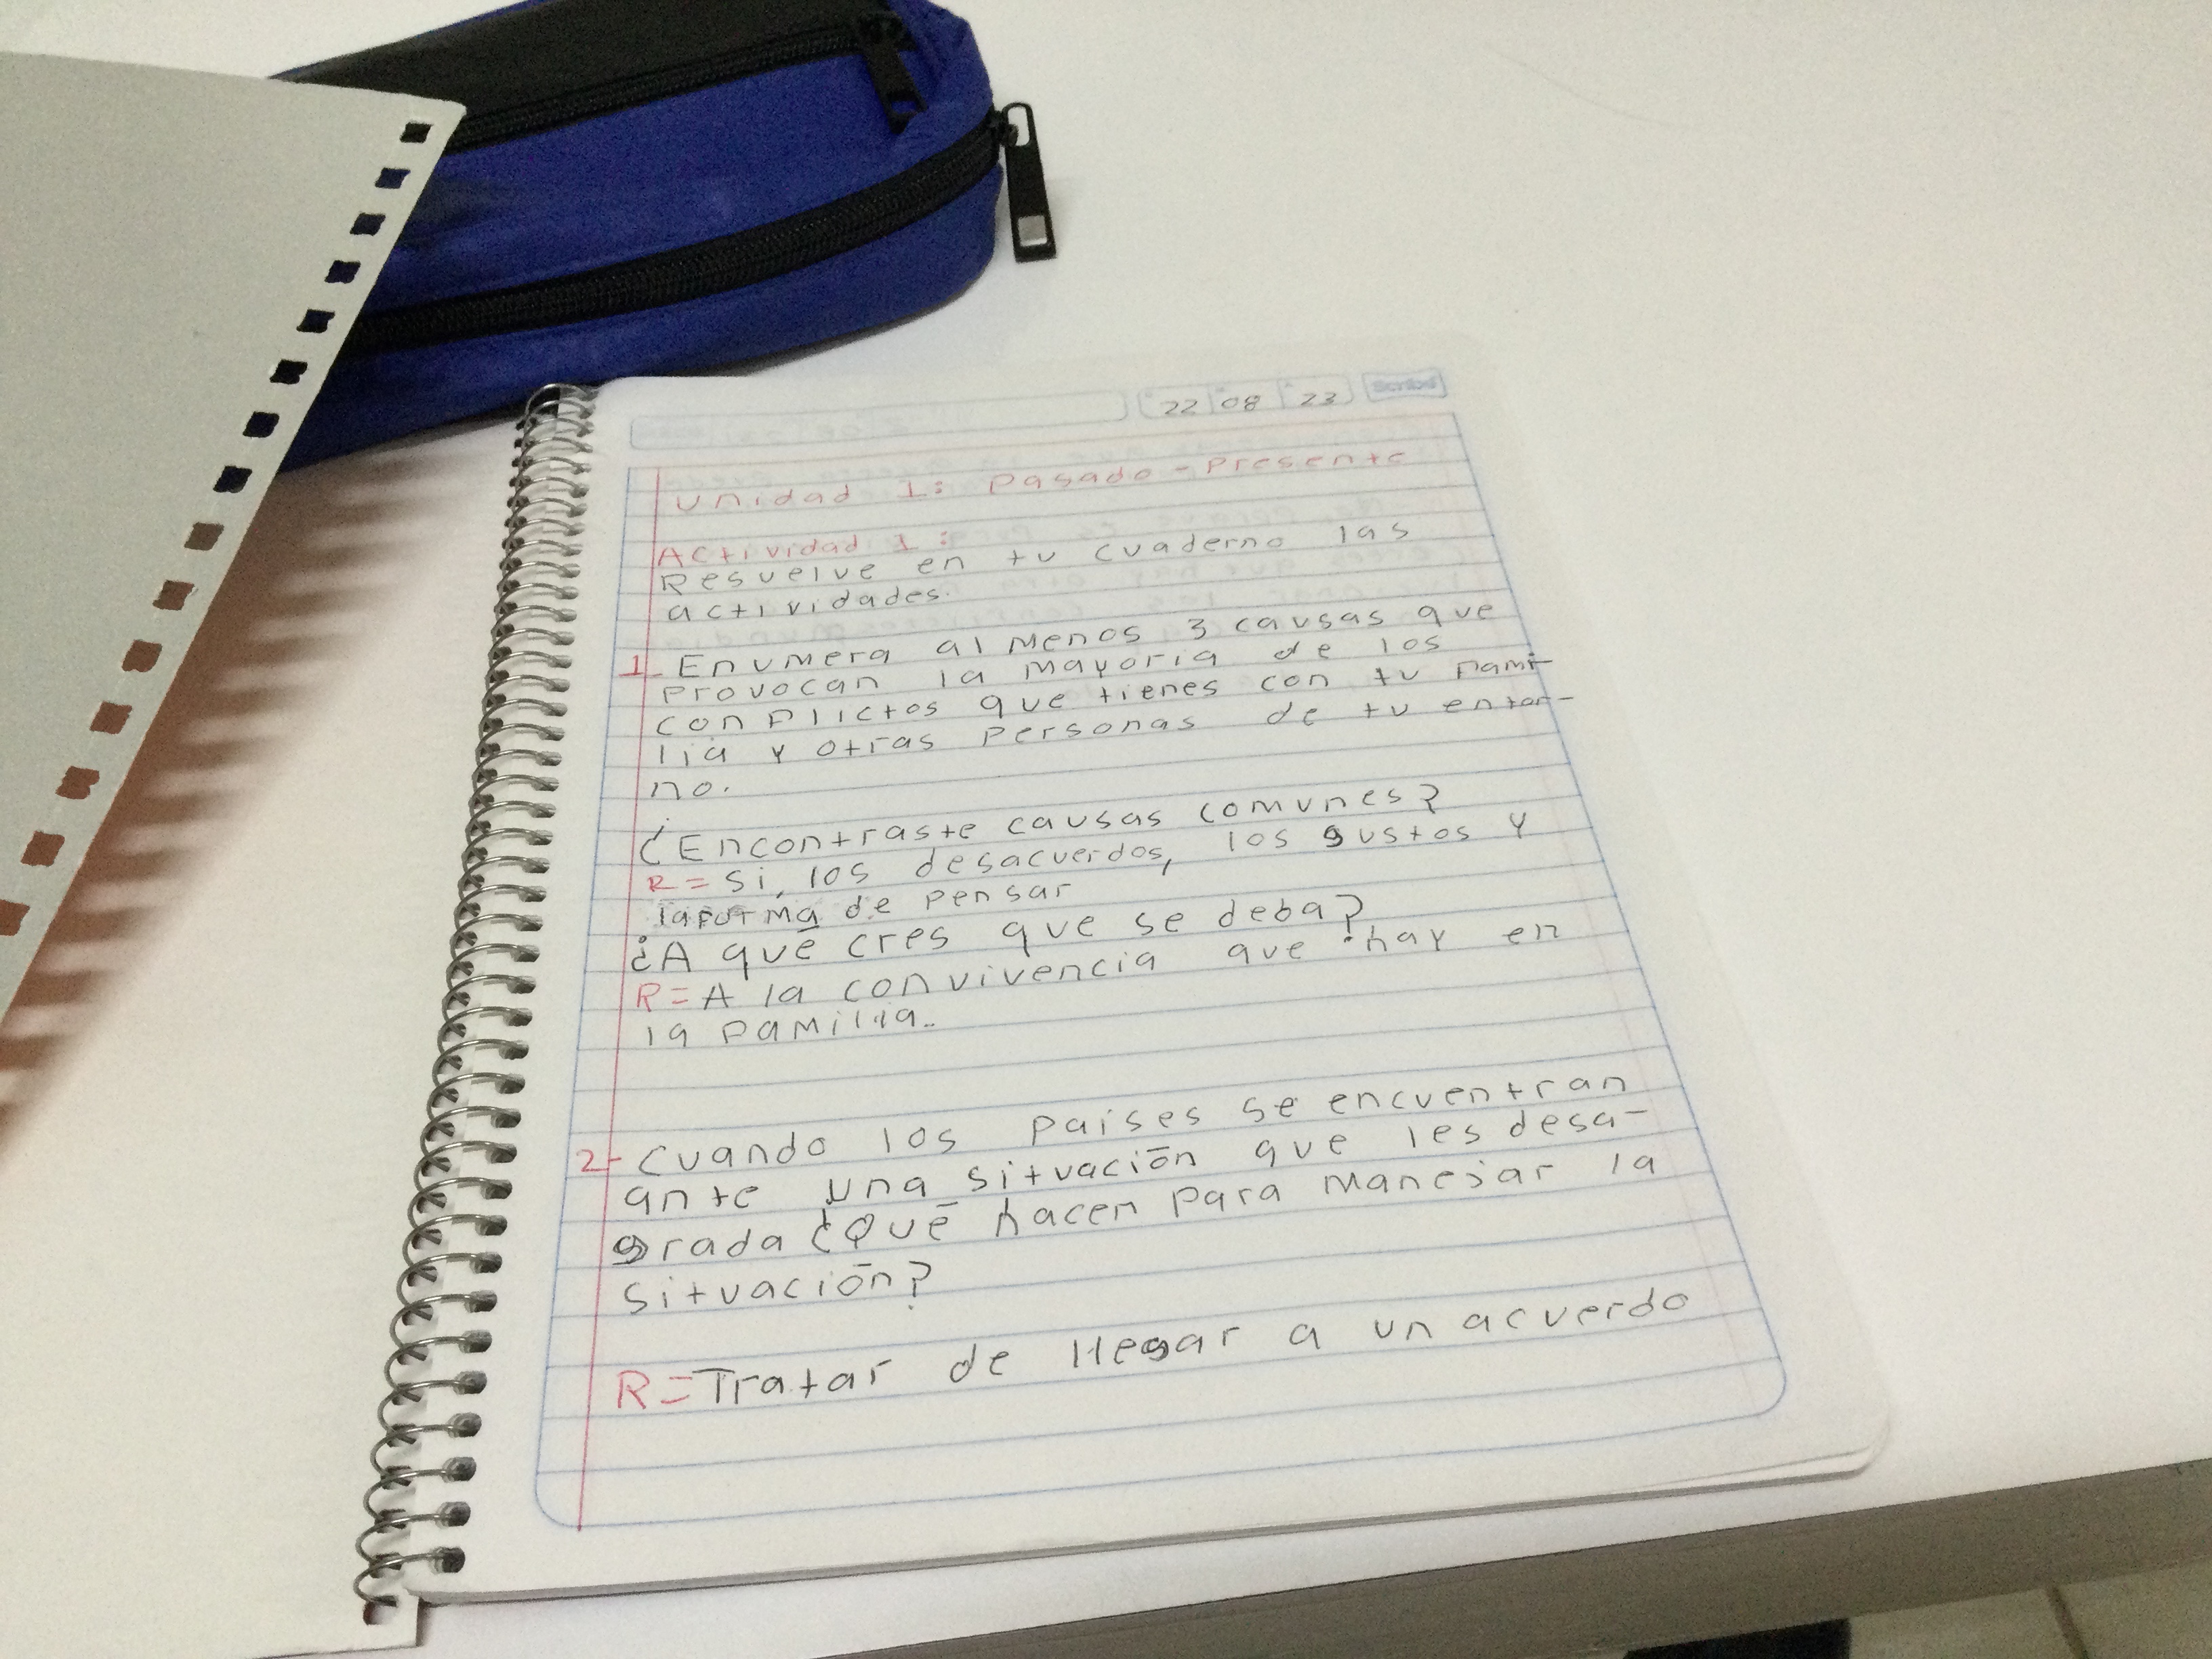 22 08 23 Scribe
Unidad 1: Pasado - Presente
Actividad 1:
Resuelve en tu cuaderno las
actividades.
1- Enumera al menos 3 causas que
provocan la mayoria de los
conflictos que tienes con tu fami-
lia y otras personas de tu entor-
no.
¿Encontraste causas comunes?
R= Si, los desacuerdos, los gustos y
la forma de pensar
¿A qué cres que se deba?
R= A la convivencia que hay en
la familia.
2- Cuando los paises se encuentran
ante una situación que les desa-
grada ¿Qué hacen para manejar la
situación?
R= Tratar de llegar a un acuerdo